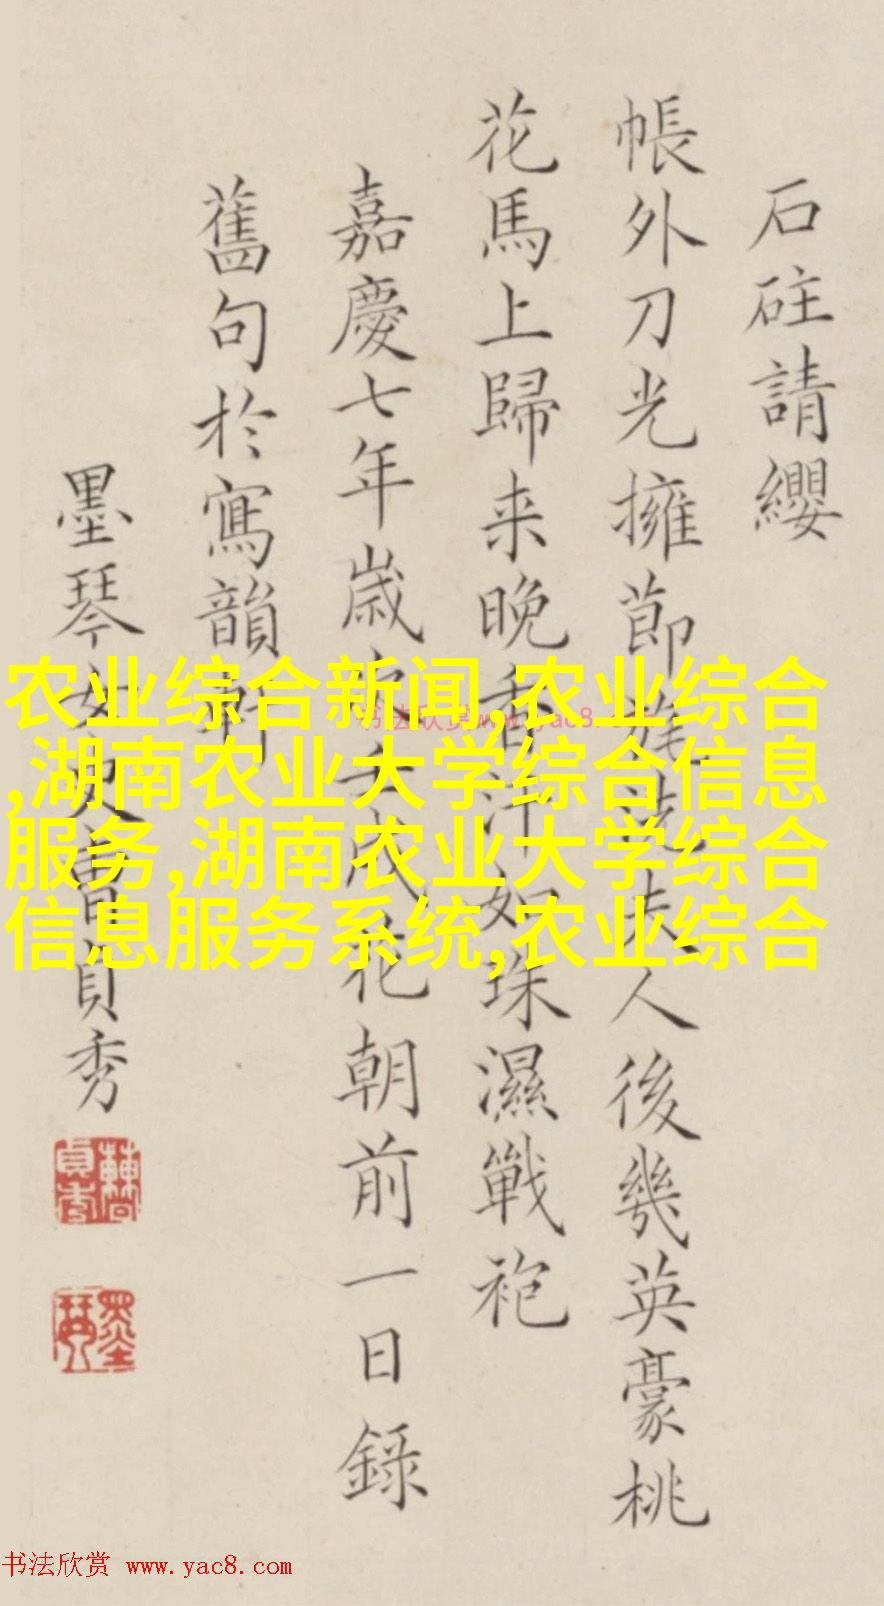 石砫請纓
帳外刀光擁節旄洗夫人後幾英豪桃
花馬上歸来晚香汗如珠濕戰袍
嘉慶七年歲次壬戌花朝前一日錄
舊句於寫韻軒
墨琴女史曹貞秀
农业综合新闻,农业综合
,湖南农业大学综合信息
服务,湖南农业大学综合
信息服务系统,农业综合
书法欣赏 www.yac8.com